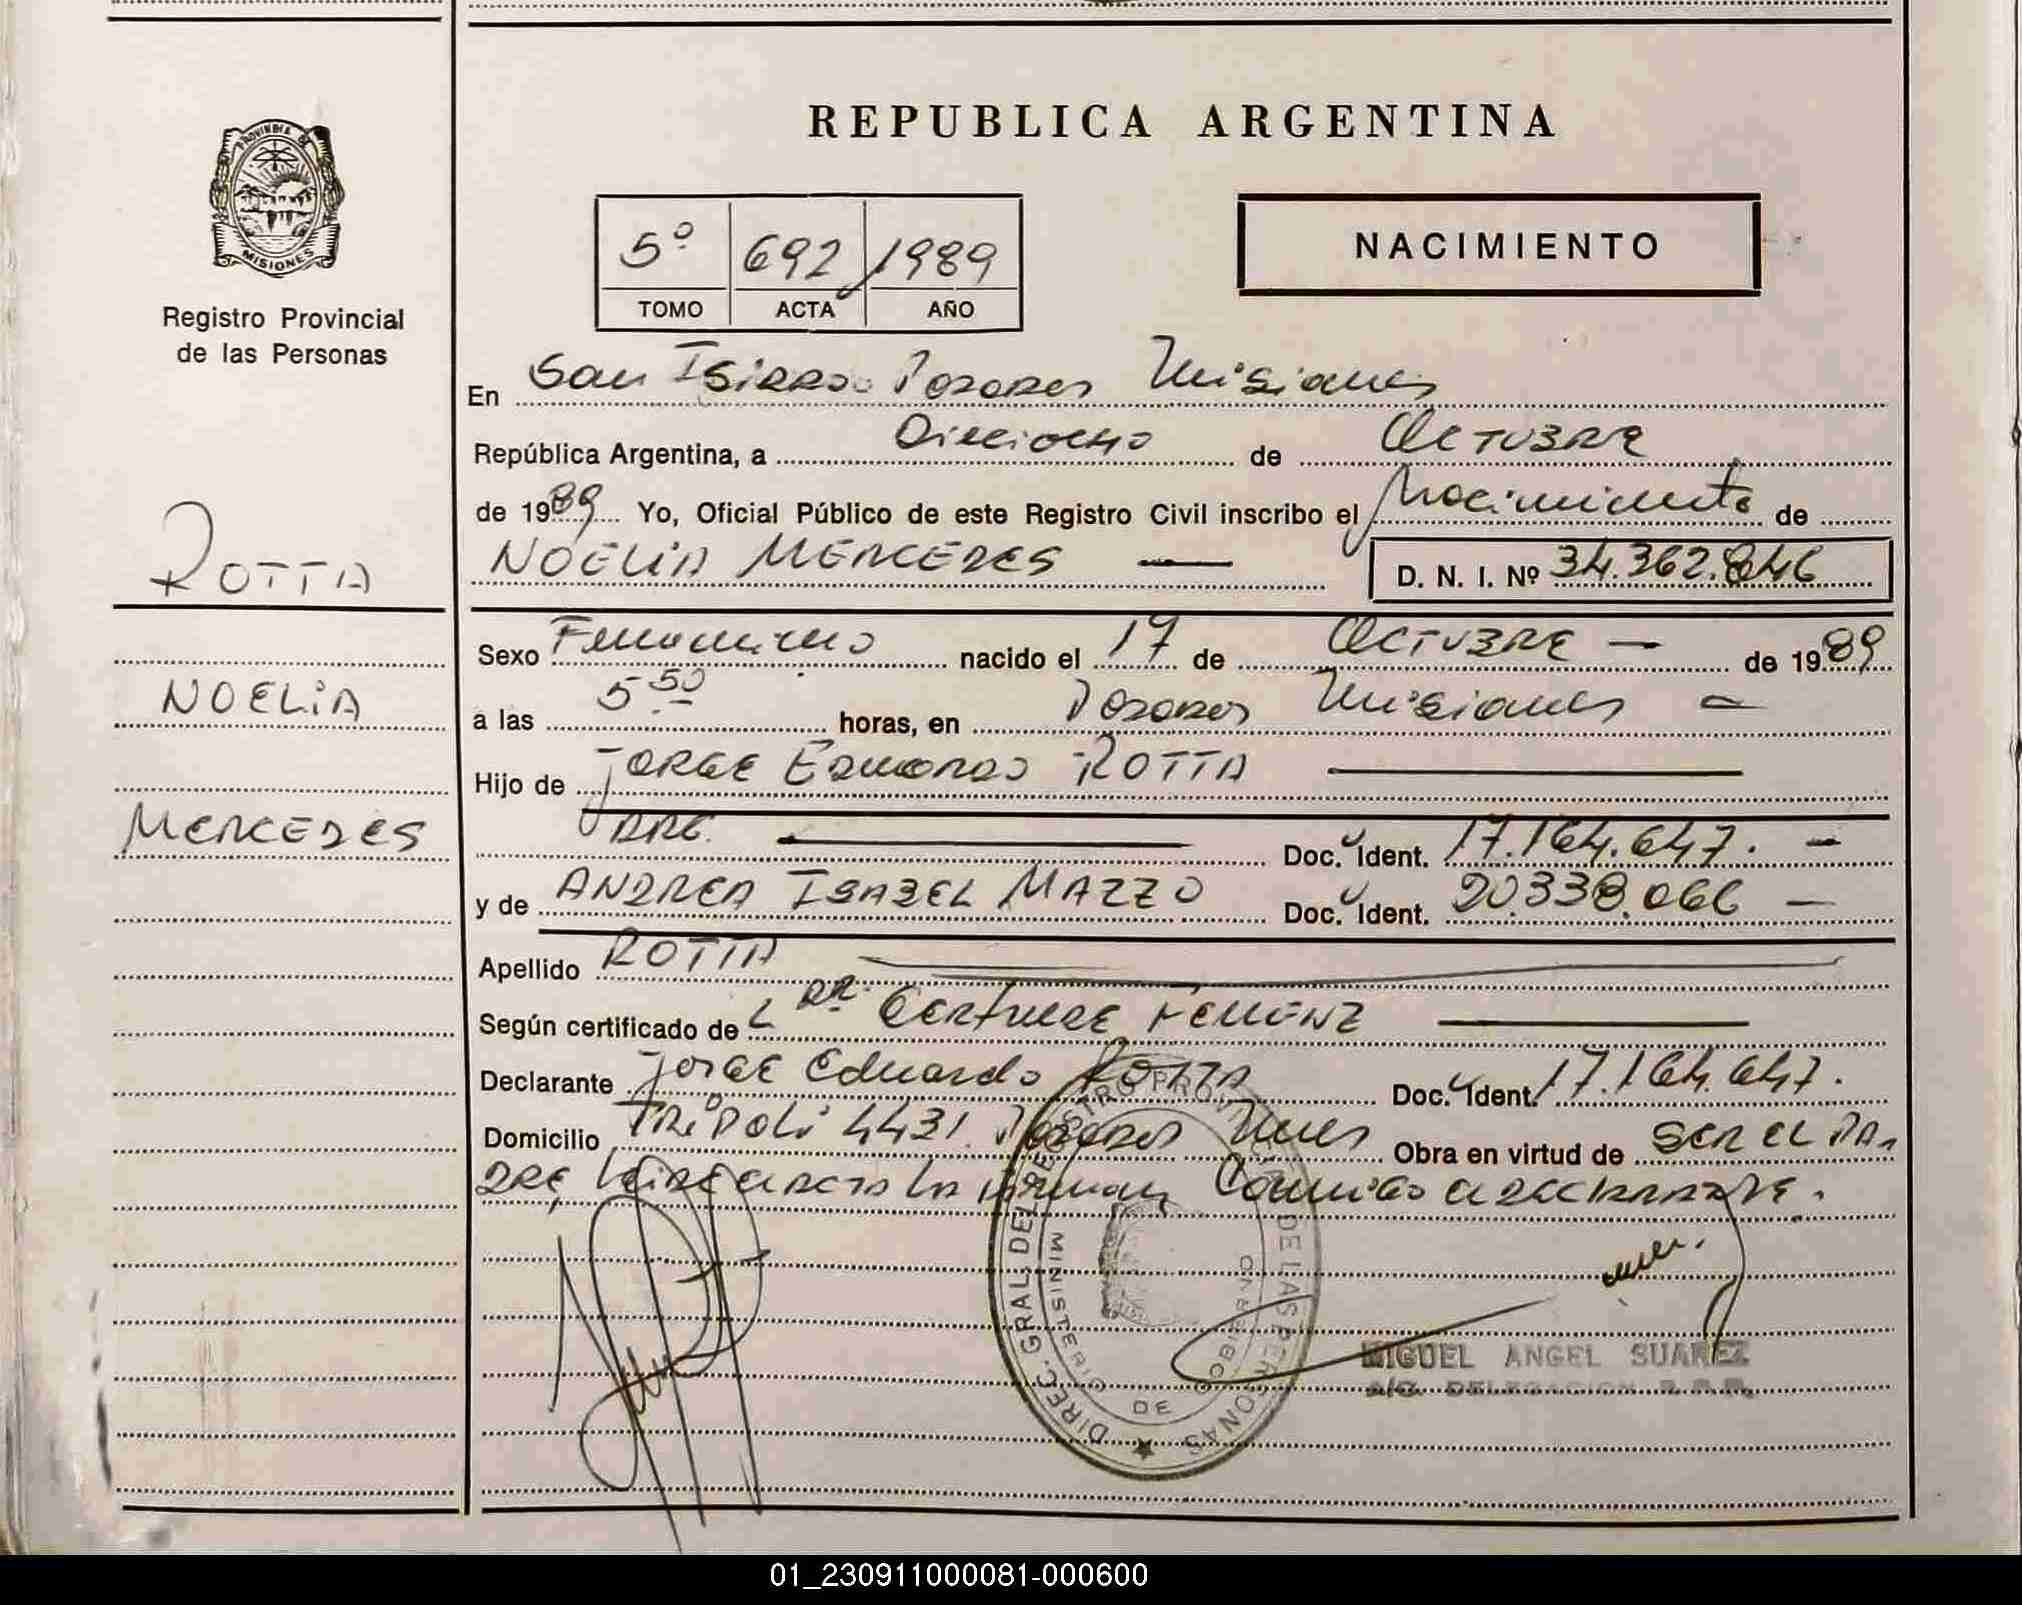 REPUBLICA ARGENTINA
PROVINCIA DE
MISIONES
Registro Provincial
de las Personas
5º 692 1989
TOMO ACTA AÑO
NACIMIENTO
En San Isidro Posadas Misiones
República Argentina, a Dieciocho de Octubre
de 1989 Yo, Oficial Público de este Registro Civil inscribo el Nacimiento de
NOELIA MERCEDES — D. N. I. Nº 34.362.846
ROTTA
NOELIA
MERCEDES
Sexo Femenino nacido el 17 de OCTUBRE — de 1989
a las 5.50 horas, en Posadas Misiones —
Hijo de JORGE EDUARDO ROTTA —
Doc. Ident. 17.164.647. —
y de ANDREA ISABEL MAZZO Doc. Ident. 20.338.066 —
Apellido ROTTA —
Según certificado de
Declarante Jorge Eduardo ROTTA Doc. Ident. 17.164.647.
Domicilio TRIPOLI 4431. Posadas Mnes Obra en virtud de SER EL PA
DRE, la firman Conmigo el declarante.
DIREC. GRAL. DEL REGISTRO PROVINCIAL DE LAS PERSONAS
MINISTERIO DE GOBIERNO
MIGUEL ANGEL SUAREZ
A/C. DELEGACION R.P.P.
01_230911000081-000600